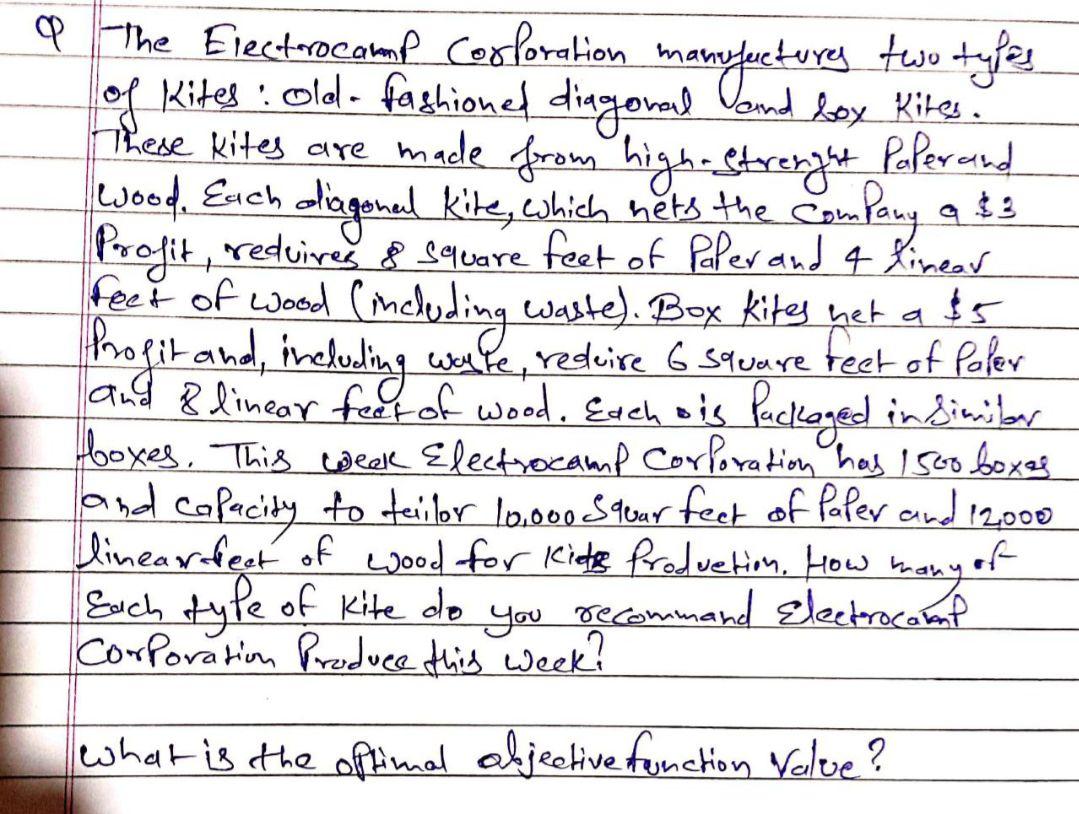 Q The Electrocamp Corporation manufactures two types
of Kites : old-fashioned diagonal and box Kites.
These Kites are made from high-strenght Paper and
wood. Each diagonal kite, which nets the company a $3
Profit, requires 8 square feet of Paper and 4 linear
feet of wood (including waste). Box kites net a $5
Profit and, including waste, require 6 square feet of Paper
and 8 linear feet of wood. Each is Packaged in similar
boxes. This week Electrocamp Corporation has 1500 boxes
and capacity to teilor 10,000 Squar feet of Paper and 12,000
linear feet of wood for Kite Production. How many of
Each type of Kite do you recommand Electrocamp
Corporation Produce this week?
what is the optimal objective function Value?